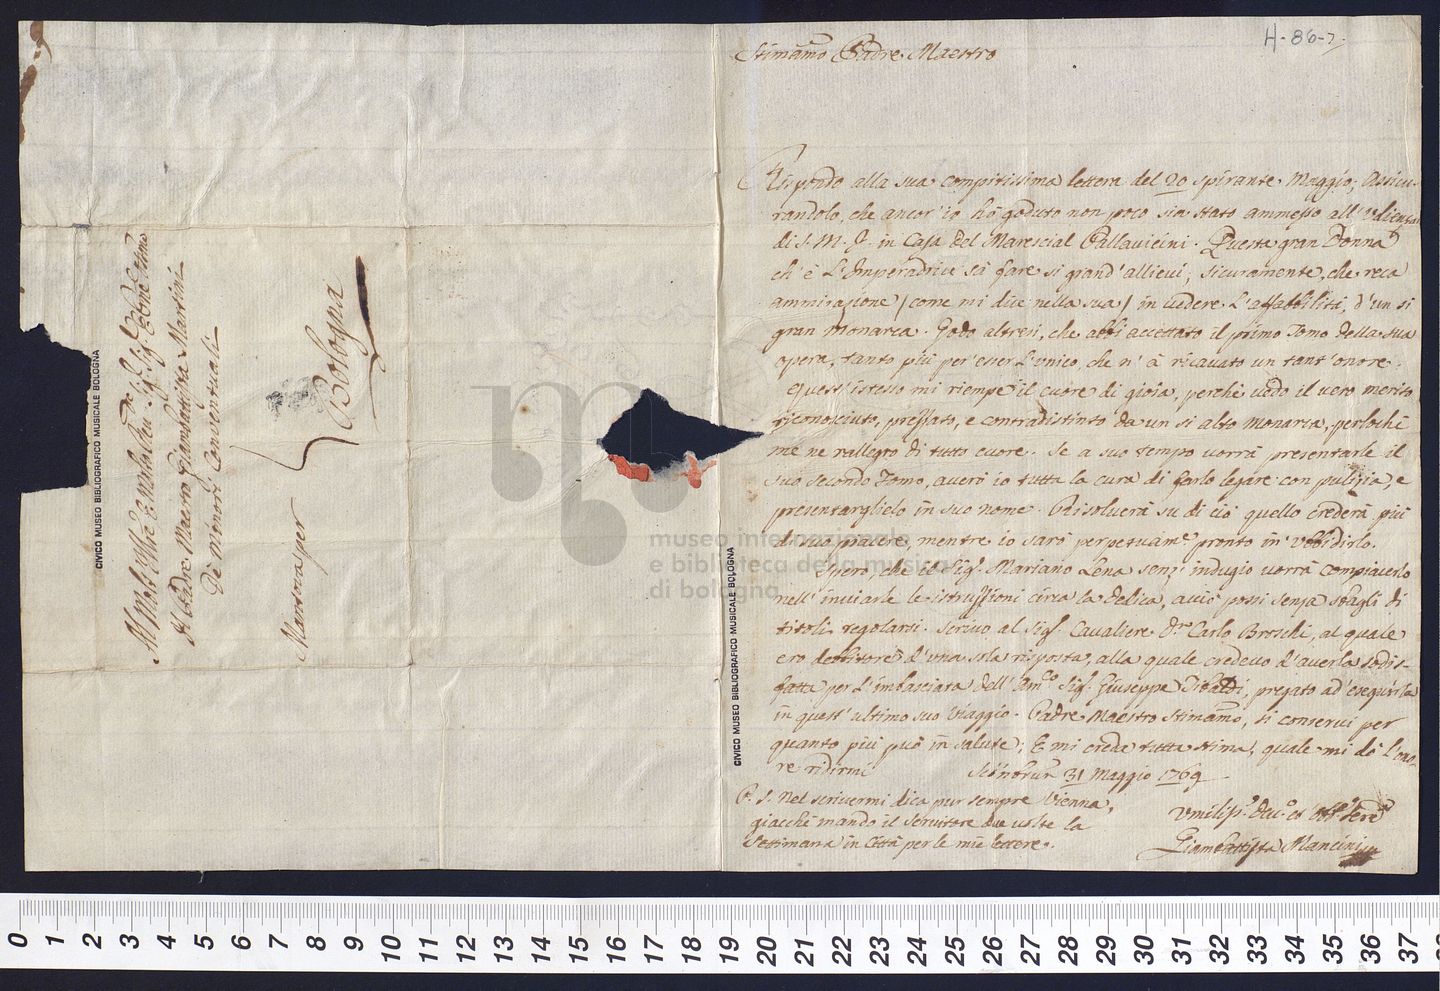 H-86-7.
Stimamo Padre Maestro
Rispondo alla sua compitissima lettera del 20 spirante Maggio, Assicu-
randolo, che ancor'io hò goduto non poco sia stato ammesso all'Udienza
di S. M. J. in Casa del Marescial Pallavicini. Questa gran Donna
ch'è L'Imperadrice sà fare si grand'allievi, sicuramente, che reca
ammirazione / come mi dice nella sua / in vedere L'affabilità, d'un si
gran Monarca. Godo altresì, che abbi accettato il primo Tomo della sua
opera, tanto più per'esser L'unico, che n'à ricavato un tant'onore.
Quest'istesso mi riempe il cuore di gioia, perchè vedo il vero merito
riconosciuto, pressato, e contradistinto da un si alto Monarca, perlochè
me ne rallegro di tutto cuore. Se a suo tempo vorrà presentarle il
suo secondo Tomo, averò io tutta la cura di farlo legare con pulizia, e
presentarglielo in suo nome. Risolverà su di ciò quello crederà più
di suo piacere, mentre io sarò perpetuame pronto in' Ubbidirlo.
Spero, che il Sigr. Mariano Lena senz'indugio vorrà compiacerlo
nell'inviarle le istruzzioni circa la Dedica, acciò possi senza sbagli di
titoli regolarsi. Scrivo al Sigr. Cavaliere Dn Carlo Broschi, al quale
ero debbitore d'una sola risposta, alla quale credevo d'averla sodis-
fatta per L'imbasciata dell'Amco Sigr. Giuseppe Tibaldi, pregato ad'esequirla
in quest'ultimo suo viaggio. Padre Maestro Stimamo, si conservi per
quanto più può in salute, E mi creda tutta stima, quale mi dò L'ono-
re ridirmi
Sciönbrun 31 Maggio 1769
P. S. Nel scrivermi dica pur sempre Vienna,
giacchè mando il Servitore due volte la
Settimana in Città per le mie lettere.
Umiliso. devo. et obbo. Serre
Giambattista Mancini
Al Padre Maestro Giambattista Martini
De Minori Conventuali
Mantova per
Bologna
CIVICO MUSEO BIBLIOGRAFICO MUSICALE BOLOGNA
CIVICO MUSEO BIBLIOGRAFICO MUSICALE BOLOGNA
museo internazionale
e biblioteca della musica
di bologna
0 1 2 3 4 5 6 7 8 9 10 11 12 13 14 15 16 17 18 19 20 21 22 23 24 25 26 27 28 29 30 31 32 33 34 35 36 37